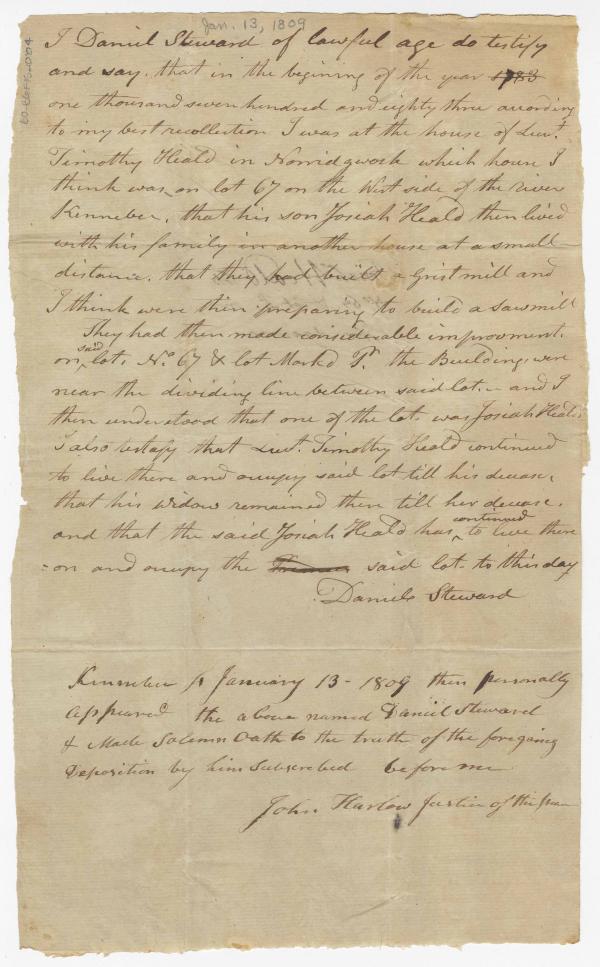 Jan. 13, 1809
I Daniel Steward of lawful age do testify
and say. that in the begining of the year 1783
one thousand seven hundred and eighty three according
to my best recollection I was at the house of Lieut.
Timothy Heald in Norridgwock which house I
think was on lot 67 on the West side of the river
Kennebec, that his son Josiah Heald then lived
with his family in another house at a small
distance. that they had built a Gristmill and
I think were then preparing to build a sawmill
They had then made considerable improvment.
on said lots No 67 & lot Markd P. the Buildings were
near the dividing line between said lots - and I
then understood that one of the lots was Josiah Heald's
I also testafy that Lieut. Timothy Heald continued
to live there and occupy said lot till his decease,
that his widow remained there till her decease.
and that the said Josiah Heald has continued to live there
-on and occupy the said lot to this day
Daniel Steward
Kennebec ss January 13 - 1809 then personally
appeared the above named Daniel Steward
& Made Solemn Oath to the truth of the foregoing
Deposition by him Subscribed before me
John Harlow Justice of the peace